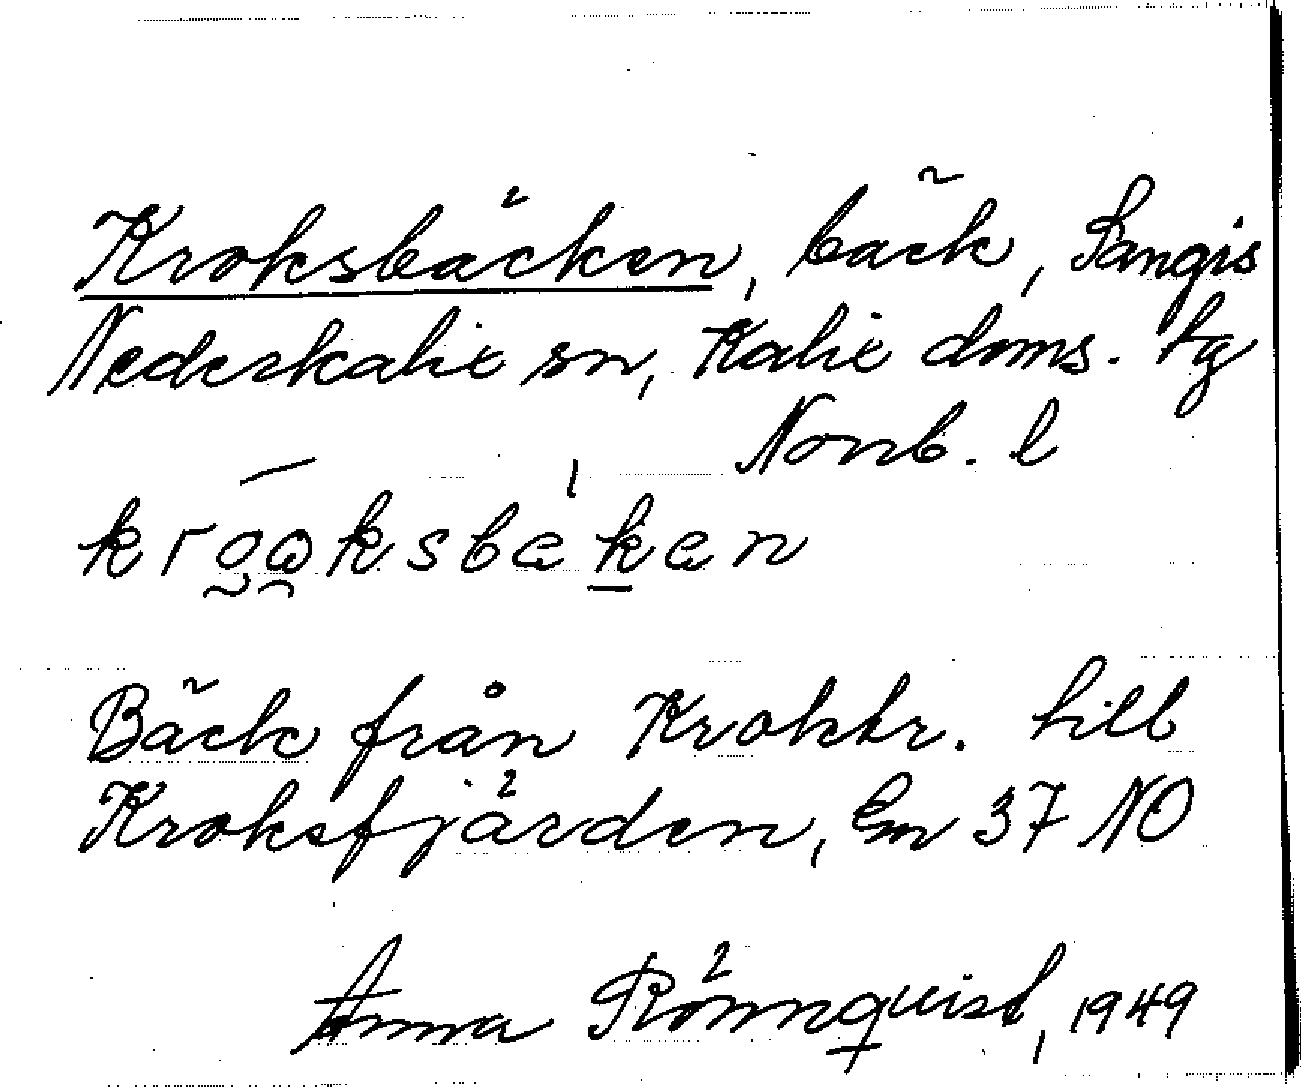 Kroksbäcken, bäck, Sangis
Nederkalix sn, Kalix doms. tg
Norrb. l
kro͜ɷ̯ksbɛḵɛn
Bäck från Kroktr. till
Kroksfjärden, En 37 NO
Anna Rönnqvist, 1949